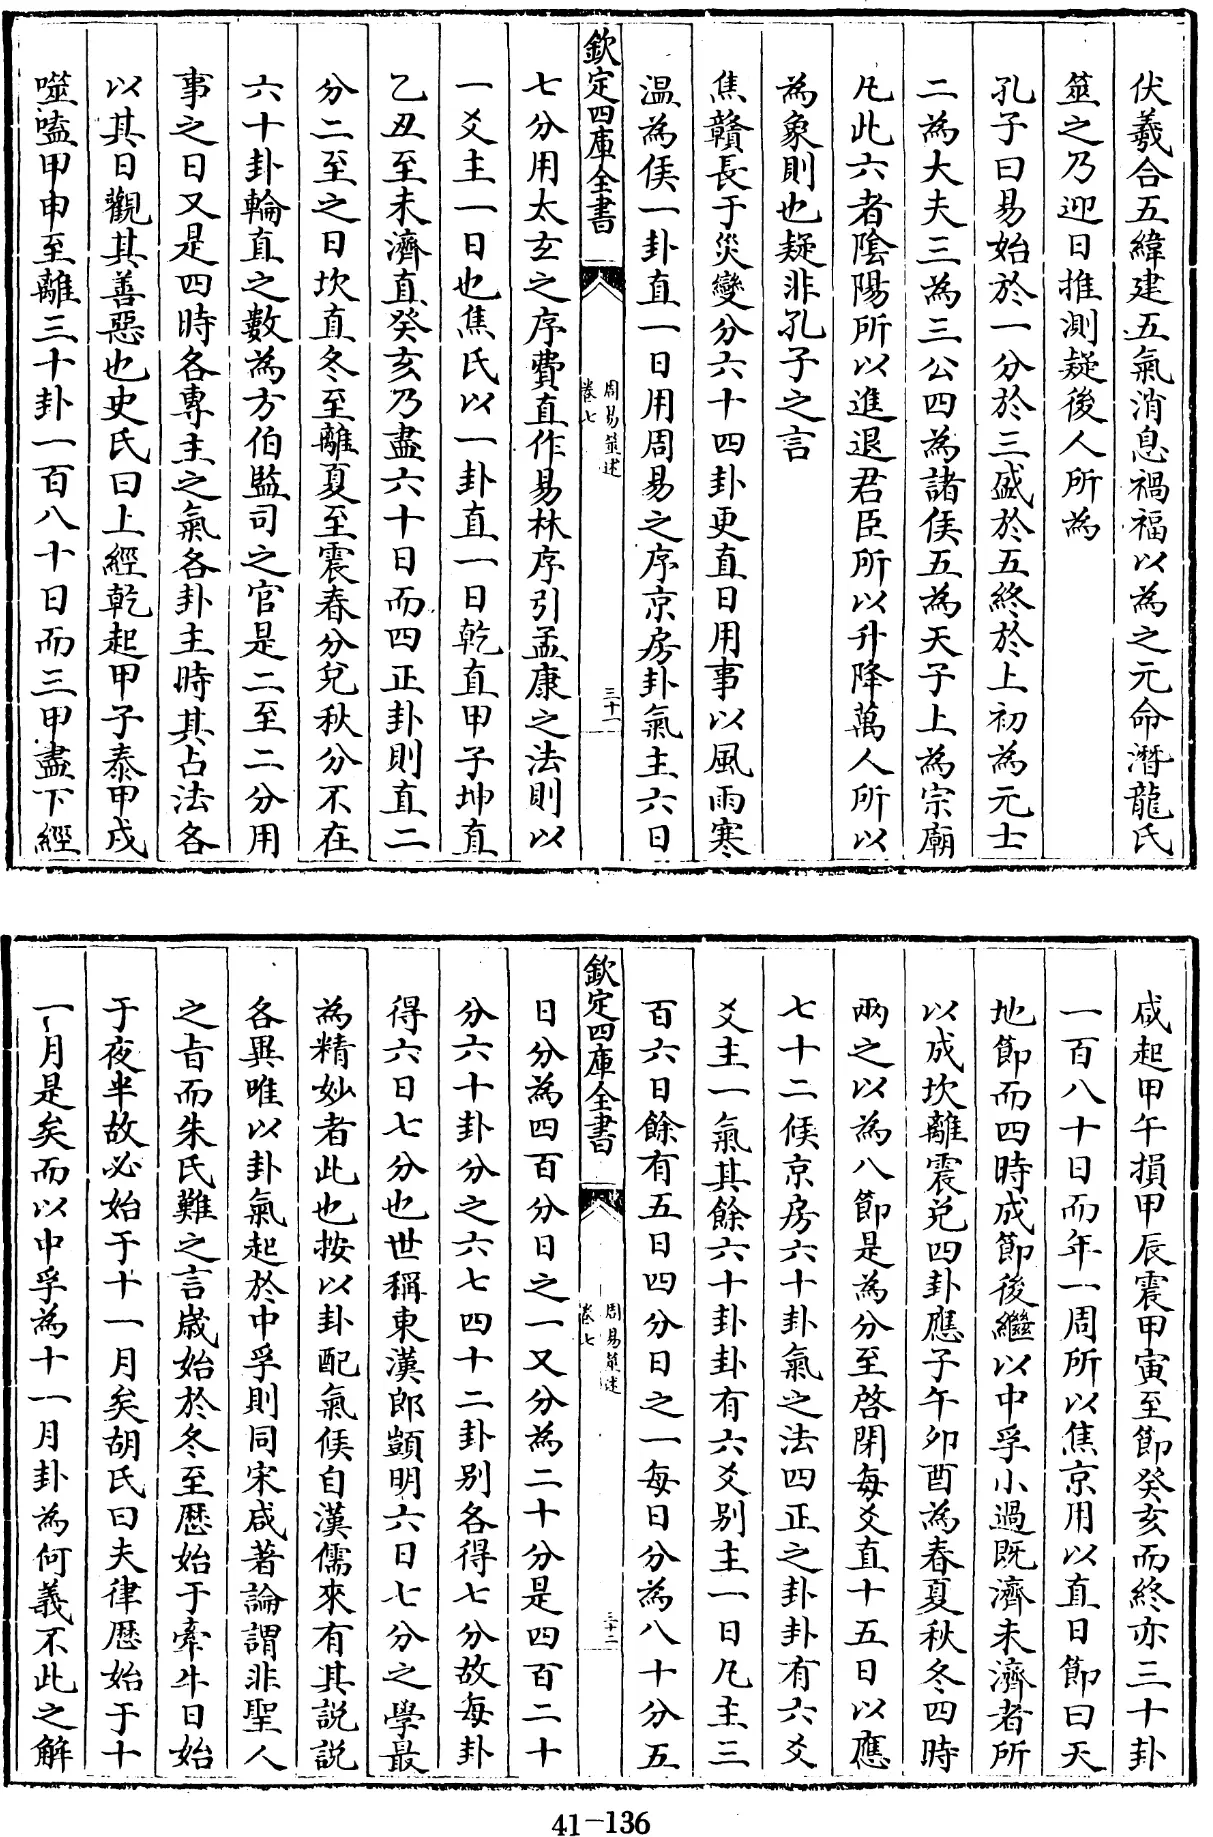 伏羲合五緯建五氣消息禍福以為之元命潛龍氏
筮之乃迎日推測疑後人所為
孔子曰易始於一分於三盛於五終於上初為元士
二為大夫三為三公四為諸侯五為天子上為宗廟
凡此六者陰陽所以進退君臣所以升降萬人所以
為象則也疑非孔子之言
焦贛長于災變分六十四卦更直日用事以風雨寒
温為侯一卦直一日用周易之序京房卦氣主六日
欽定四庫全書
周易筮述
卷七
三十一
七分用太玄之序費直作易林序引孟康之法則以
一爻主一日也焦氏以一卦直一日乾直甲子坤直
乙丑至未濟直癸亥乃盡六十日而四正卦則直二
分二至之日坎直冬至離夏至震春分兌秋分不在
六十卦輪直之數為方伯監司之官是二至二分用
事之日又是四時各專主之氣各卦主時其占法各
以其日觀其善惡也史氏曰上經乾起甲子泰甲戌
噬嗑甲申至離三十卦一百八十日而三甲盡下經
咸起甲午損甲辰震甲寅至節癸亥而終亦三十卦
一百八十日而年一周所以焦京用以直日節曰天
地節而四時成節後繼以中孚小過既濟未濟者所
以成坎離震兌四卦應子午卯酉為春夏秋冬四時
兩之以為八節是為分至啓閉每爻直十五日以應
七十二候京房六十卦氣之法四正之卦卦有六爻
爻主一氣其餘六十卦卦有六爻别主一日凡主三
百六日餘有五日四分日之一每日分為八十分五
欽定四庫全書
周易筮述
卷七
三十二
日分為四百分日之一又分為二十分是四百二十
分六十卦分之六七四十二卦别各得七分故每卦
得六日七分也世稱東漢郎顗明六日七分之學最
為精妙者此也按以卦配氣候自漢儒來有其説説
各異唯以卦氣起於中孚則同宋咸著論謂非聖人
之旨而朱氏難之言歲始於冬至厯始于牽牛日始
于夜半故必始于十一月矣胡氏曰夫律厯始于十
一月是矣而以中孚為十一月卦為何義不此之解
41-136